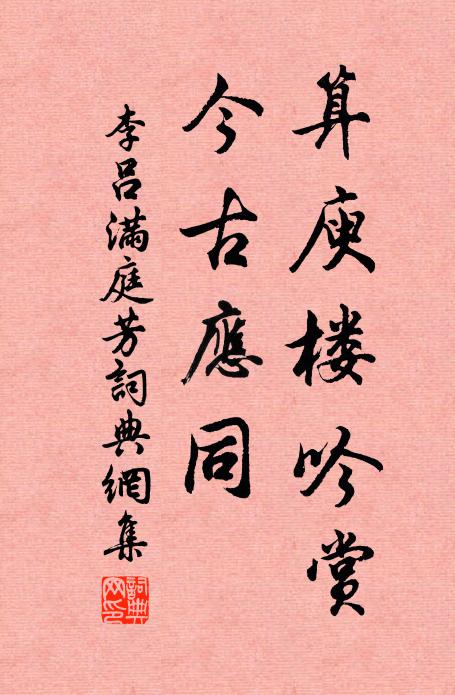 算庾楼吟赏
今古應同
李呂滿庭芳詞典網集
詞典网印